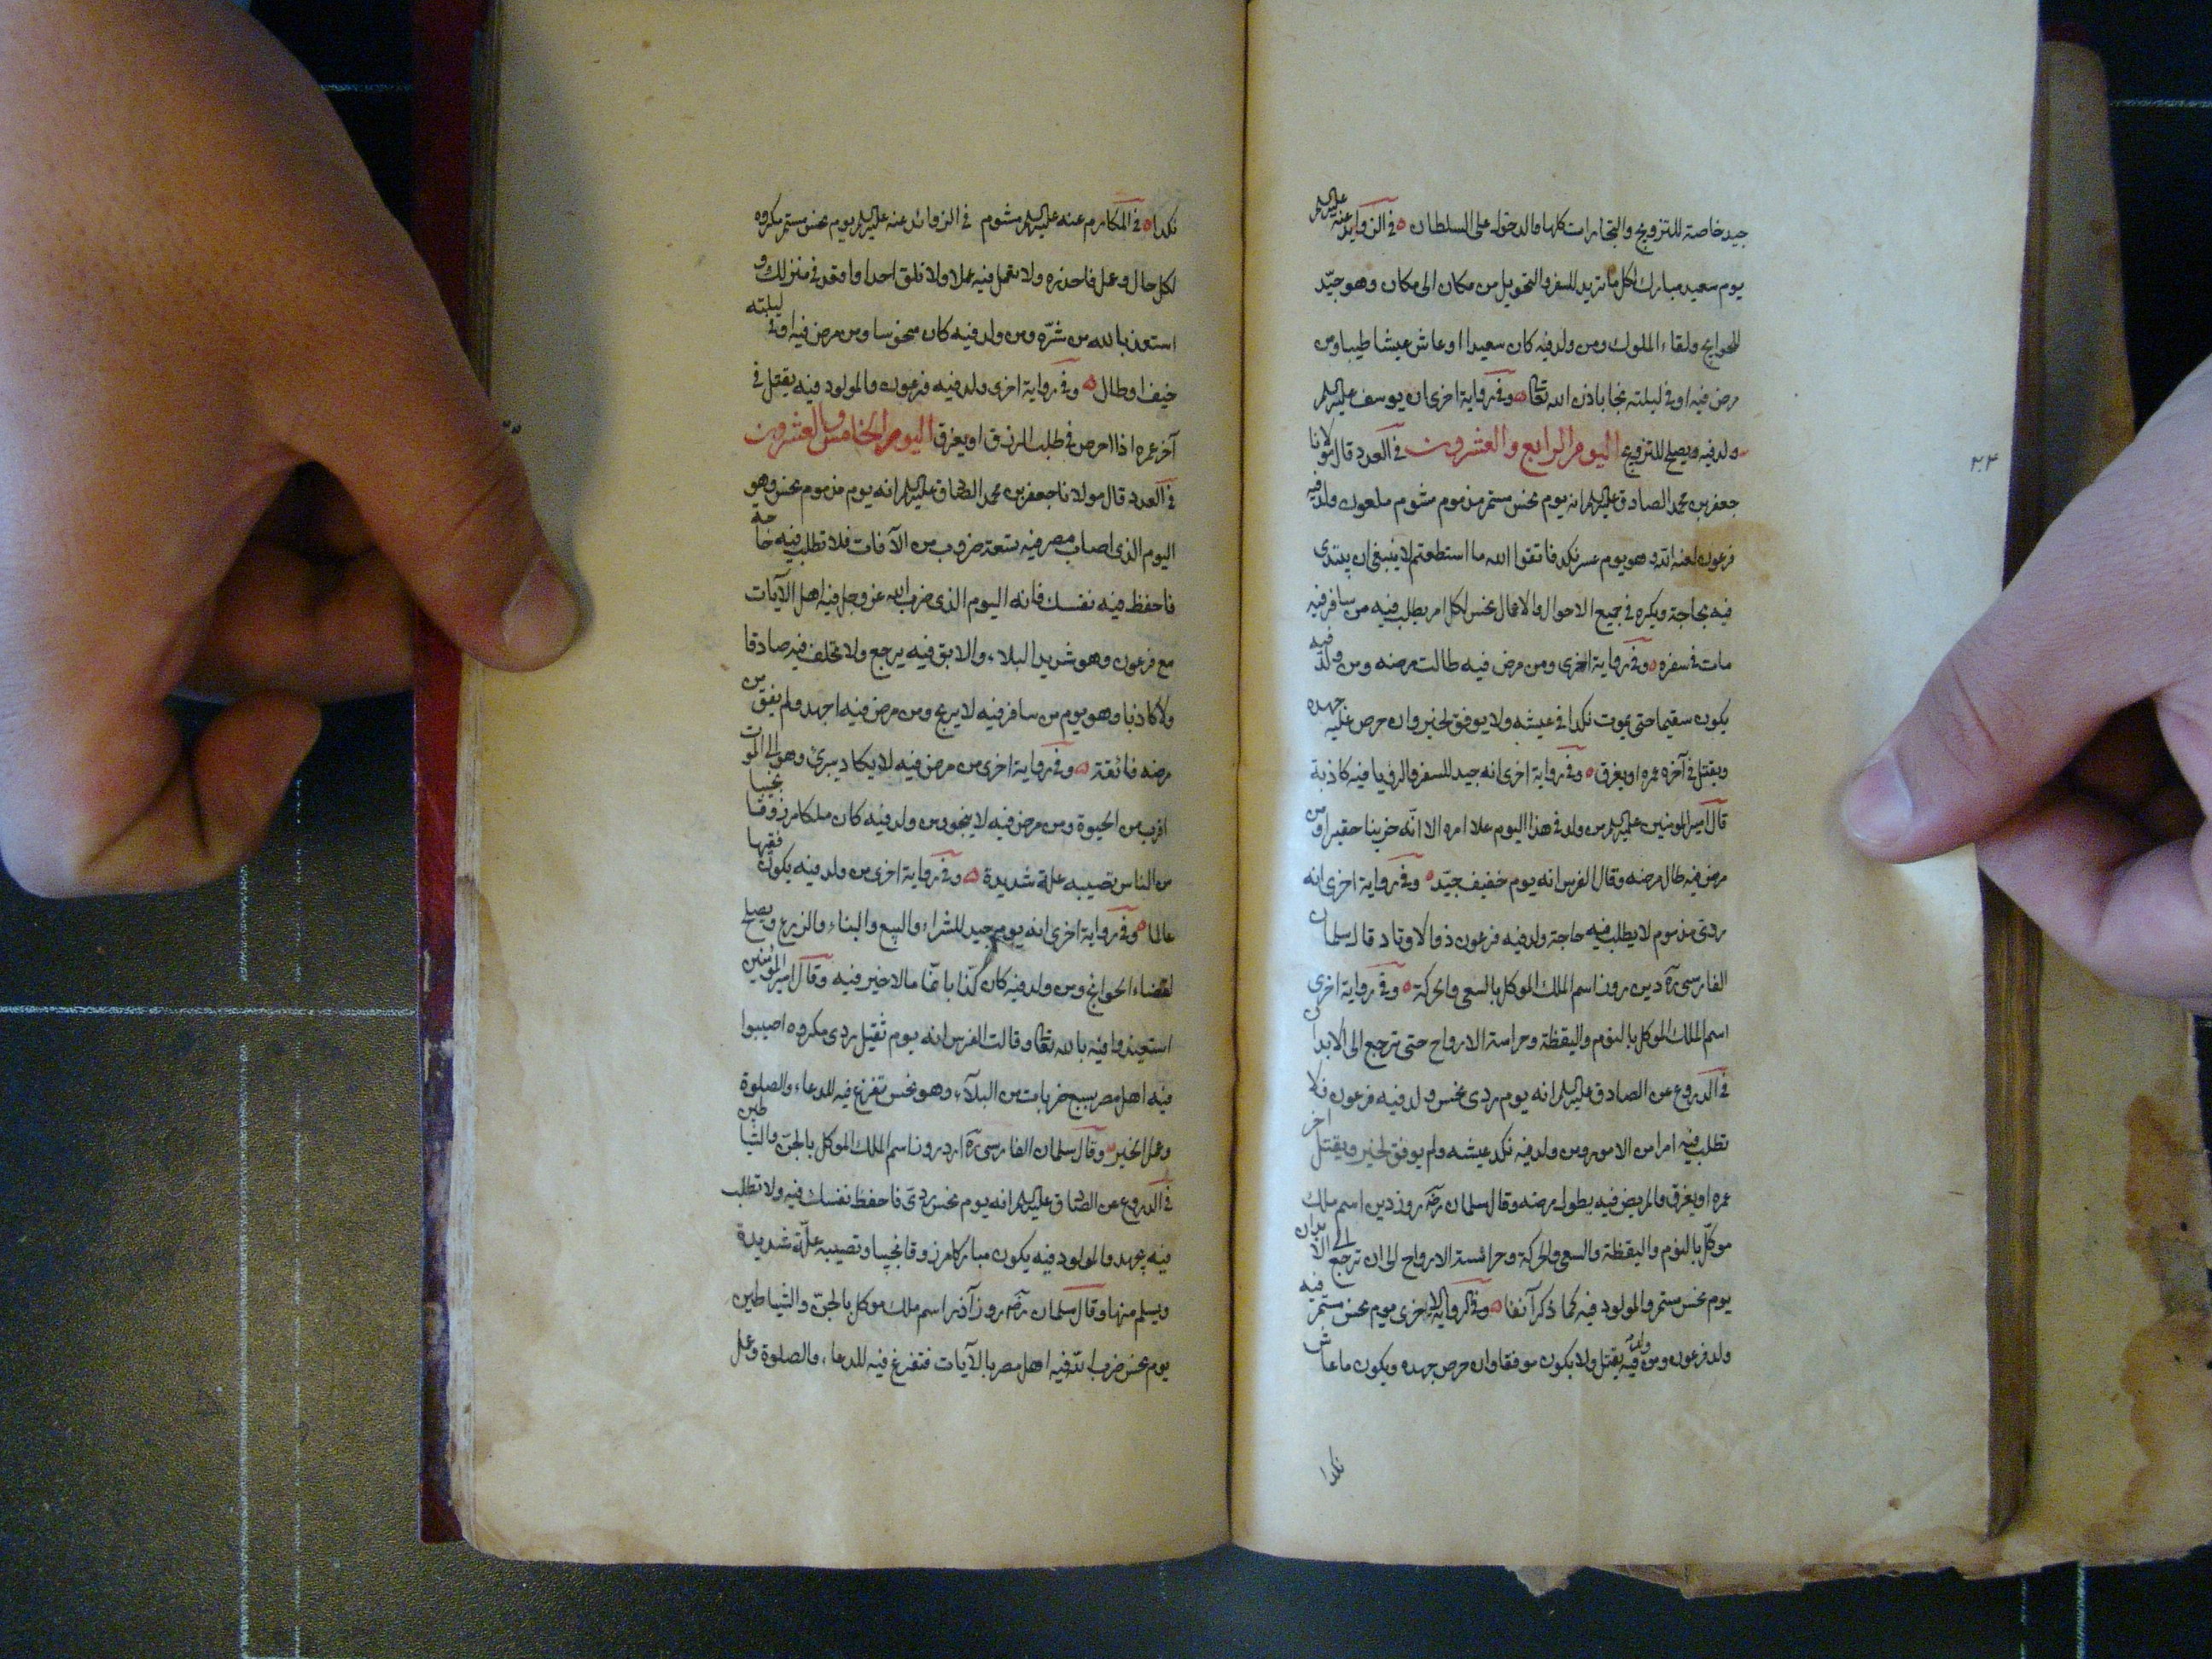 جيد خاصة للتزويج والتجارات كلها والدخول على السلطان ه في الزوايد عنه عليه السلم
يوم سعيد مبارك لكل ما تريد للسفر والتحويل من مكان الى مكان وهو جيّد
للحوايج ولقاء الملوك ومن ولد فيه كان سعيدا وعاش عيشا طيبا ومن
مرض فيه او في ليلته نجا باذن الله تعالى ه وفي رواية اخرى ان يوسف عليه السلم
ولد فيه ويصلح للتزويج اليوم الرابع والعشرون في العدد قال مولانا
جعفر بن محمد الصادق عليه السلم انه يوم نحس مستمر مذموم مشوم ملعون ولد فيه
فرعون لعنه الله وهو يوم عسر نكد فاتقوا الله ما استطعتم لا ينبغي ان يبتدى
فيه بحاجة ويكره في جميع الاحوال والاعمال نحس لكل امر يطلب فيه من سافر فيه
مات في سفره ه وفي رواية اخرى ومن مرض فيه طالت مرضه ومن ولد فيه
يكون سقيما حتى يموت نكدا في عيشه ولا يوفق لخير وان حرص عليه جهده
ويقتل في آخر عمره او يغرق ه وفي رواية اخرى انه جيد للسفر والرؤيا فيه كاذبة
قال امير المومنين عليه السلم من ولد في هذا اليوم علا امره الا انّه حزينا حقيرا ومن
مرض فيه طال مرضه وقال الفرس انه يوم خفيف جيّد ه وفي رواية اخرى انه
ردى مذموم لا يطلب فيه حاجة ولد فيه فرعون ذو الاوتاد قال سلمان
الفارسى ره دين روز اسم الملك الموكل بالسعى والحركة ه وفي رواية اخرى
اسم الملك الموكل بالنوم واليقظة وحراسة الارواح حتى ترجع الى الابدان
في الدروع عن الصادق عليه السلم انه يوم ردى نحس ولد فيه فرعون فلا
تطلب فيه امرا من الامور ومن ولد فيه نكد عيشه ولم يوفق لخير ويقتل آخر
عمره او يغرق والمريض فيه يطول مرضه وقال سلمان رض روز دين اسم ملك
موكّل بالنوم واليقظة والسعى والحركة وحراسة الارواح الى ان ترجع الى الابدان
يوم نحس مستمر والمولود فيه كما ذكر آنفا ه وفي الرواية الاخرى يوم نحس مستمر فيه
ولد فرعون ومن ولد فيه يقتل ولا يكون موفقا وان حرص جهده ويكون ما عاش
نكدا
نكدا ه في المكارم عنه عليه السلم مشوم في الزوائد عنه عليه السلم يوم نحس مستمر مكروه
لكل حال وعمل فاحذره ولا تعمل فيه عملا ولا تلق احدا واقعد في منزلك و
استعذ بالله من شرّه ومن ولد فيه كان منحوسا ومن مرض فيه او في ليلته
خيف او طال ه وفي رواية اخرى ولد فيه فرعون والمولود فيه يقتل في
آخر عمره اذا احرص في طلب الرزق او يغرق اليوم الخامس والعشرون
في العدد قال مولانا جعفر بن محمد الصادق عليه السلم انه يوم مذموم نحس وهو
اليوم الذى اصاب مصر فيه تسعة ضروب من الآفات فلا تطلب فيه حاجة
فاحفظ فيه نفسك فانه اليوم الذى ضرب الله عز وجل فيه اهل الآيات
مع فرعون وهو شديد البلاء والآبق فيه يرجع ولا تحلف فيه صادقا
ولا كاذبا وهو يوم من سافر فيه لا يربح ومن مرض فيه اجهد ولم يفق من
مرضه فائقة ه وفي رواية اخرى من مرض فيه لا يكاد يبرئ وهو الى الموت
اقرب من الحيوة ومن مرض فيه لا ينجو ومن ولد فيه كان ملكا مرزوقا نجيبا
من الناس تصيبه علة شديدة ه وفي رواية اخرى من ولد فيه يكون فقيها
عالما ه وفي رواية اخرى انه يوم جيد للشراء والبيع والبناء والزرع ويصلح
لقضاء الحوائج ومن ولد فيه كان كذّابا نمّاما لا خير فيه وقال امير المومنين
استعيذوا فيه بالله تعالى وقالت الفرس انه يوم ثقيل ردى مكروه اصيبوا
فيه اهل مصر بسبع ضربات من البلاء وهو نحس تفرغ فيه للدعاء والصلوة
وعمل الخير ه وقال سلمان الفارسى ره ارد روز اسم الملك الموكل بالجنّ والشياطين
في الدروع عن الصادق عليه السلم انه يوم نحس ردى فاحفظ نفسك فيه ولا تطلب
فيه بجهد والمولود فيه يكون مباركا مرزوقا نجيبا وتصيبه علّة شديدة
ويسلم منها وقال سلمان رض روز آذر اسم ملك موكل بالجنّ والشياطين
يوم نحس ضرب الله فيه اهل مصر بالآيات فتفرغ فيه للدعاء والصلوة وعمل